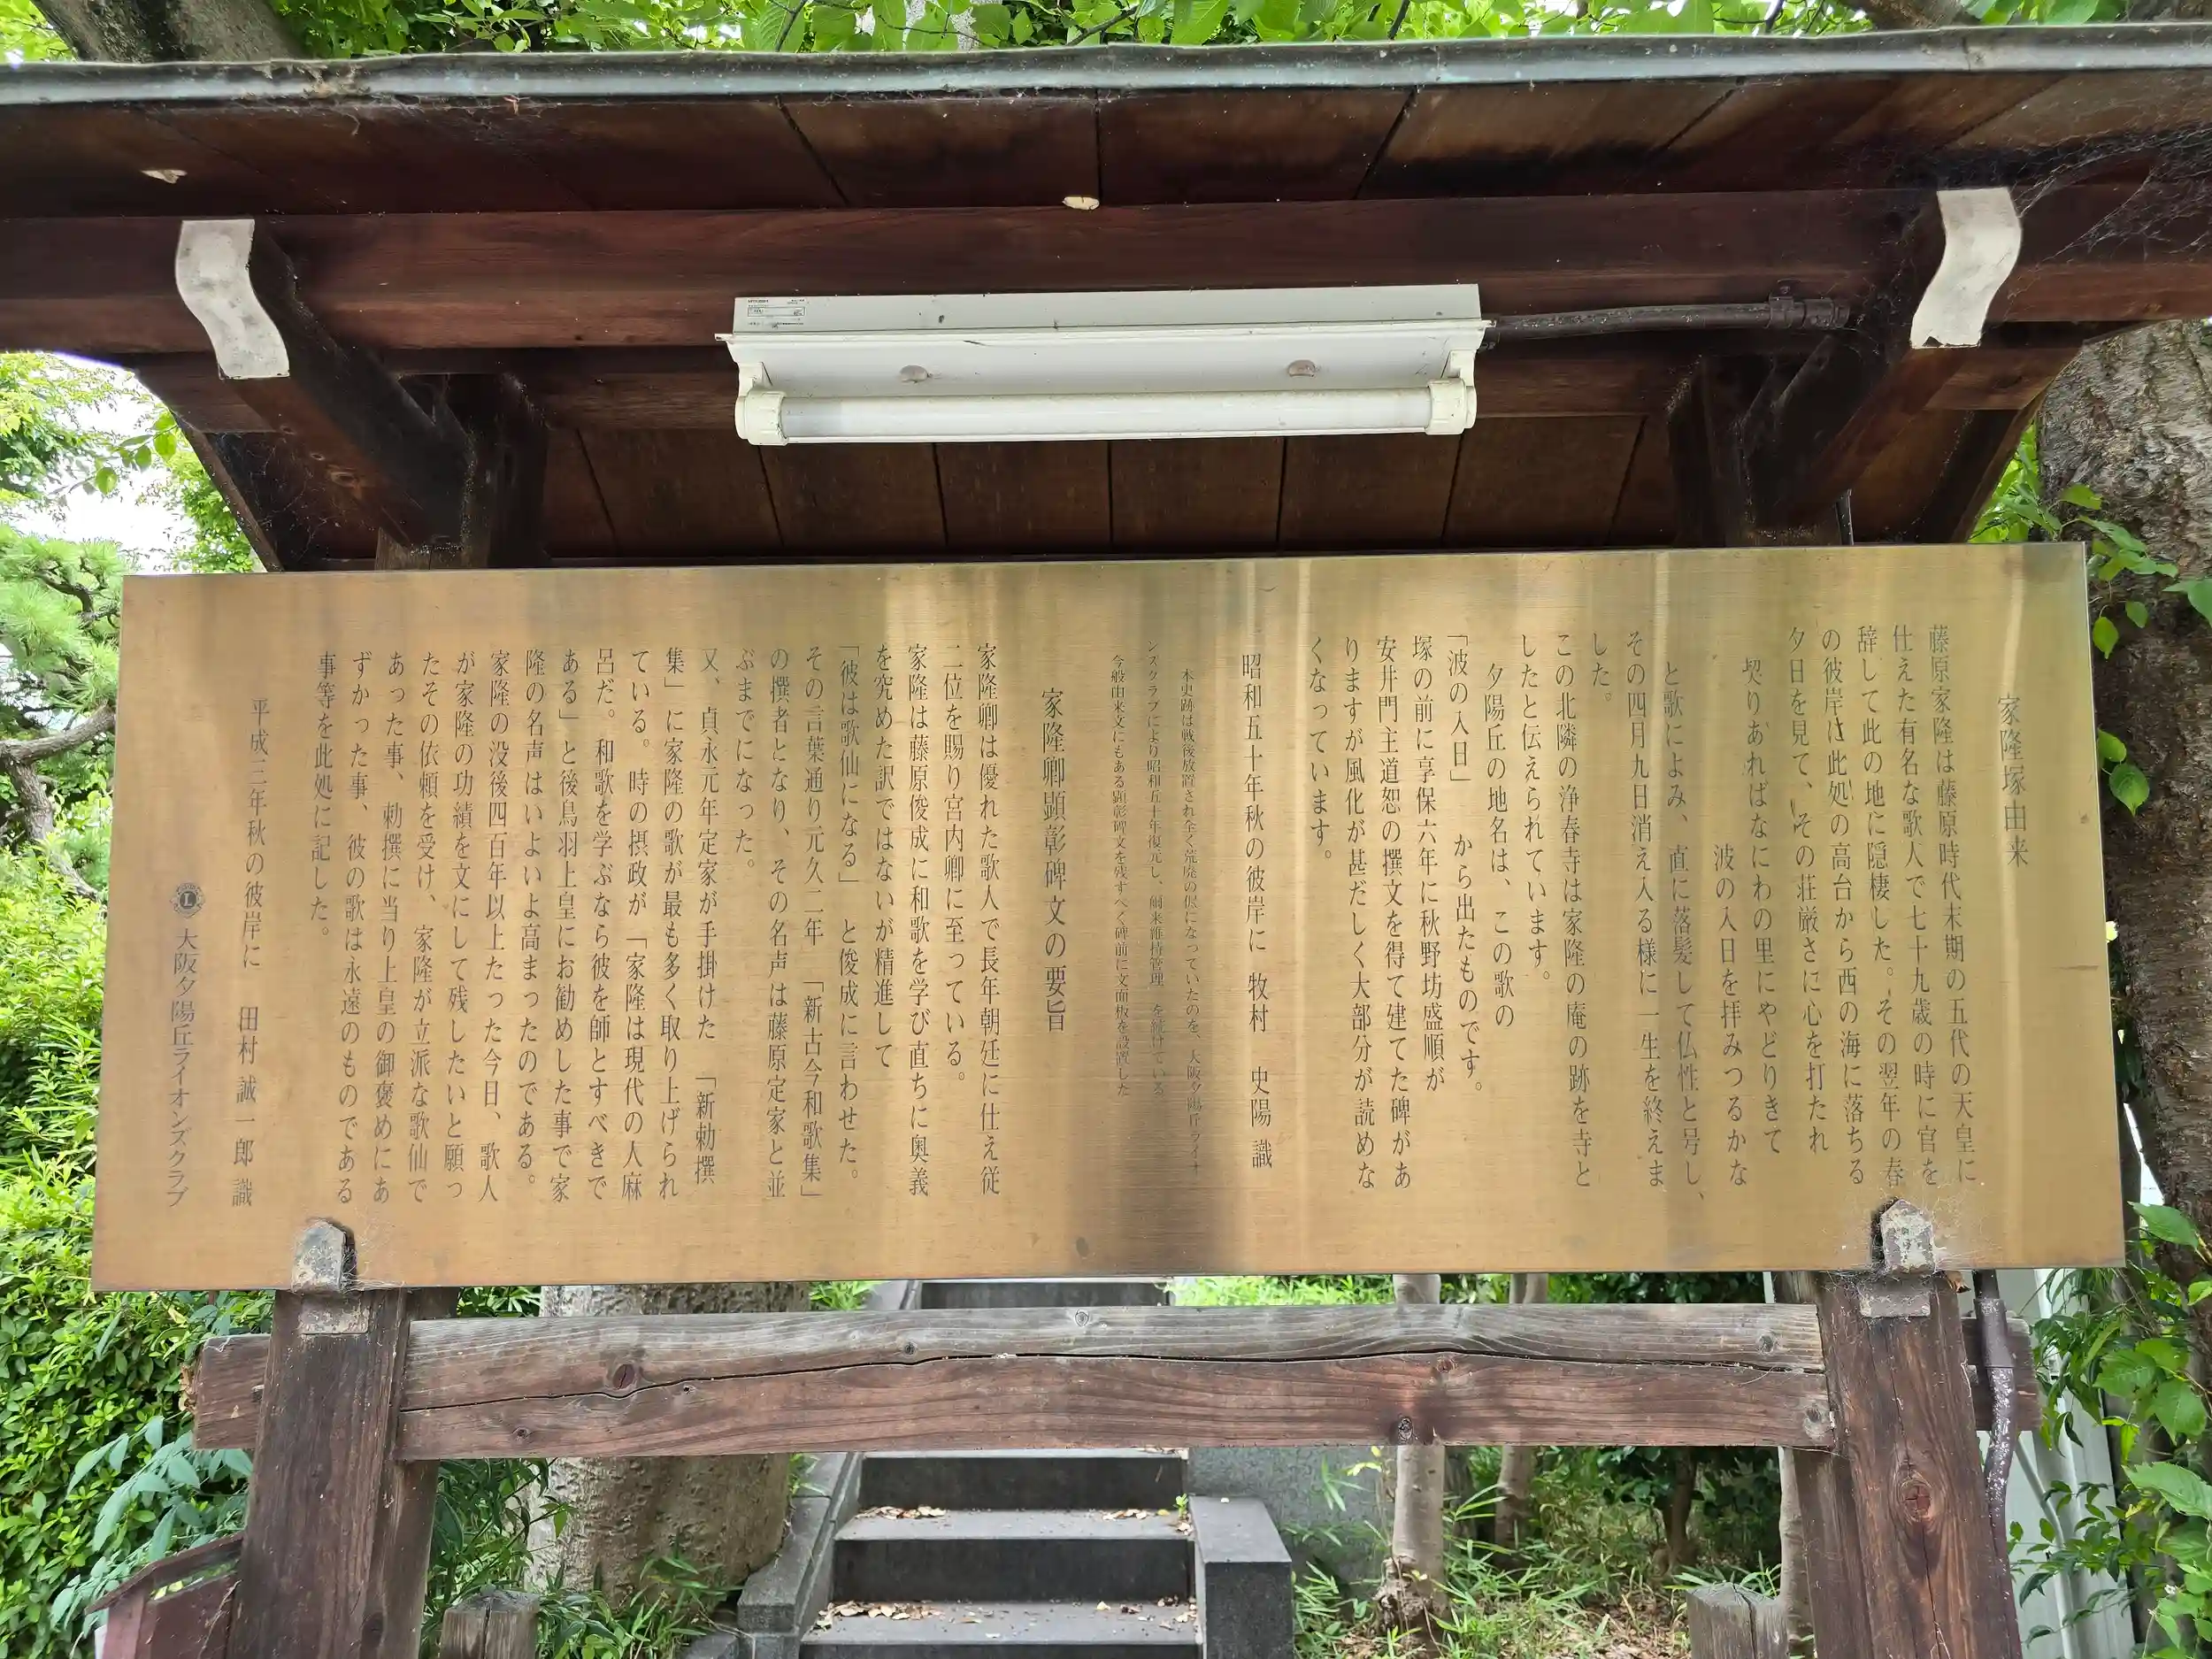 家隆塚由来
藤原家隆は藤原時代末期の五代の天皇に
仕えた有名な歌人で七十九歳の時に官を
辞して此の地に隠棲した。その翌年の春
の彼岸に此処の高台から西の海に落ちる
夕日を見て、その荘厳さに心を打たれ
契りあればなにわの里にやどりきて
波の入日を拝みつるかな
と歌によみ、直に落髪して仏性と号し、
その四月九日消え入る様に一生を終えま
した。
この北隣の浄春寺は家隆の庵の跡を寺と
したと伝えられています。
夕陽丘の地名は、この歌の
「波の入日」から出たものです。
塚の前に享保六年に秋野坊盛順が
安井門主道恕の撰文を得て建てた碑があ
りますが風化が甚だしく大部分が読めな
くなっています。
昭和五十年秋の彼岸に 牧村 史陽 識
本史跡は戦後放置され全く荒廃の侭になっていたのを、大阪夕陽丘ライオ
ンズクラブにより昭和五十年復元し、爾来維持管理 を続けている
今般由来文にもある顕彰碑文を残すべく碑前に文面板を設置した
家隆卿顕彰碑文の要旨
家隆卿は優れた歌人で長年朝廷に仕え従
二位を賜り宮内卿に至っている。
家隆は藤原俊成に和歌を学び直ちに奥義
を究めた訳ではないが精進して
「彼は歌仙になる」と俊成に言わせた。
その言葉通り元久二年「新古今和歌集」
の撰者となり、その名声は藤原定家と並
ぶまでになった。
又、貞永元年定家が手掛けた「新勅撰
集」に家隆の歌が最も多く取り上げられ
ている。時の摂政が「家隆は現代の人麻
呂だ。和歌を学ぶなら彼を師とすべきで
ある」と後鳥羽上皇にお勧めした事で家
隆の名声はいよいよ高まったのである。
家隆の没後四百年以上たった今日、歌人
が家隆の功績を文にして残したいと願っ
たその依頼を受け、家隆が立派な歌仙で
あった事、勅撰に当り上皇の御褒めにあ
ずかった事、彼の歌は永遠のものである
事等を此処に記した。
平成三年秋の彼岸に 田村 誠一郎 識
大阪夕陽丘ライオンズクラブ